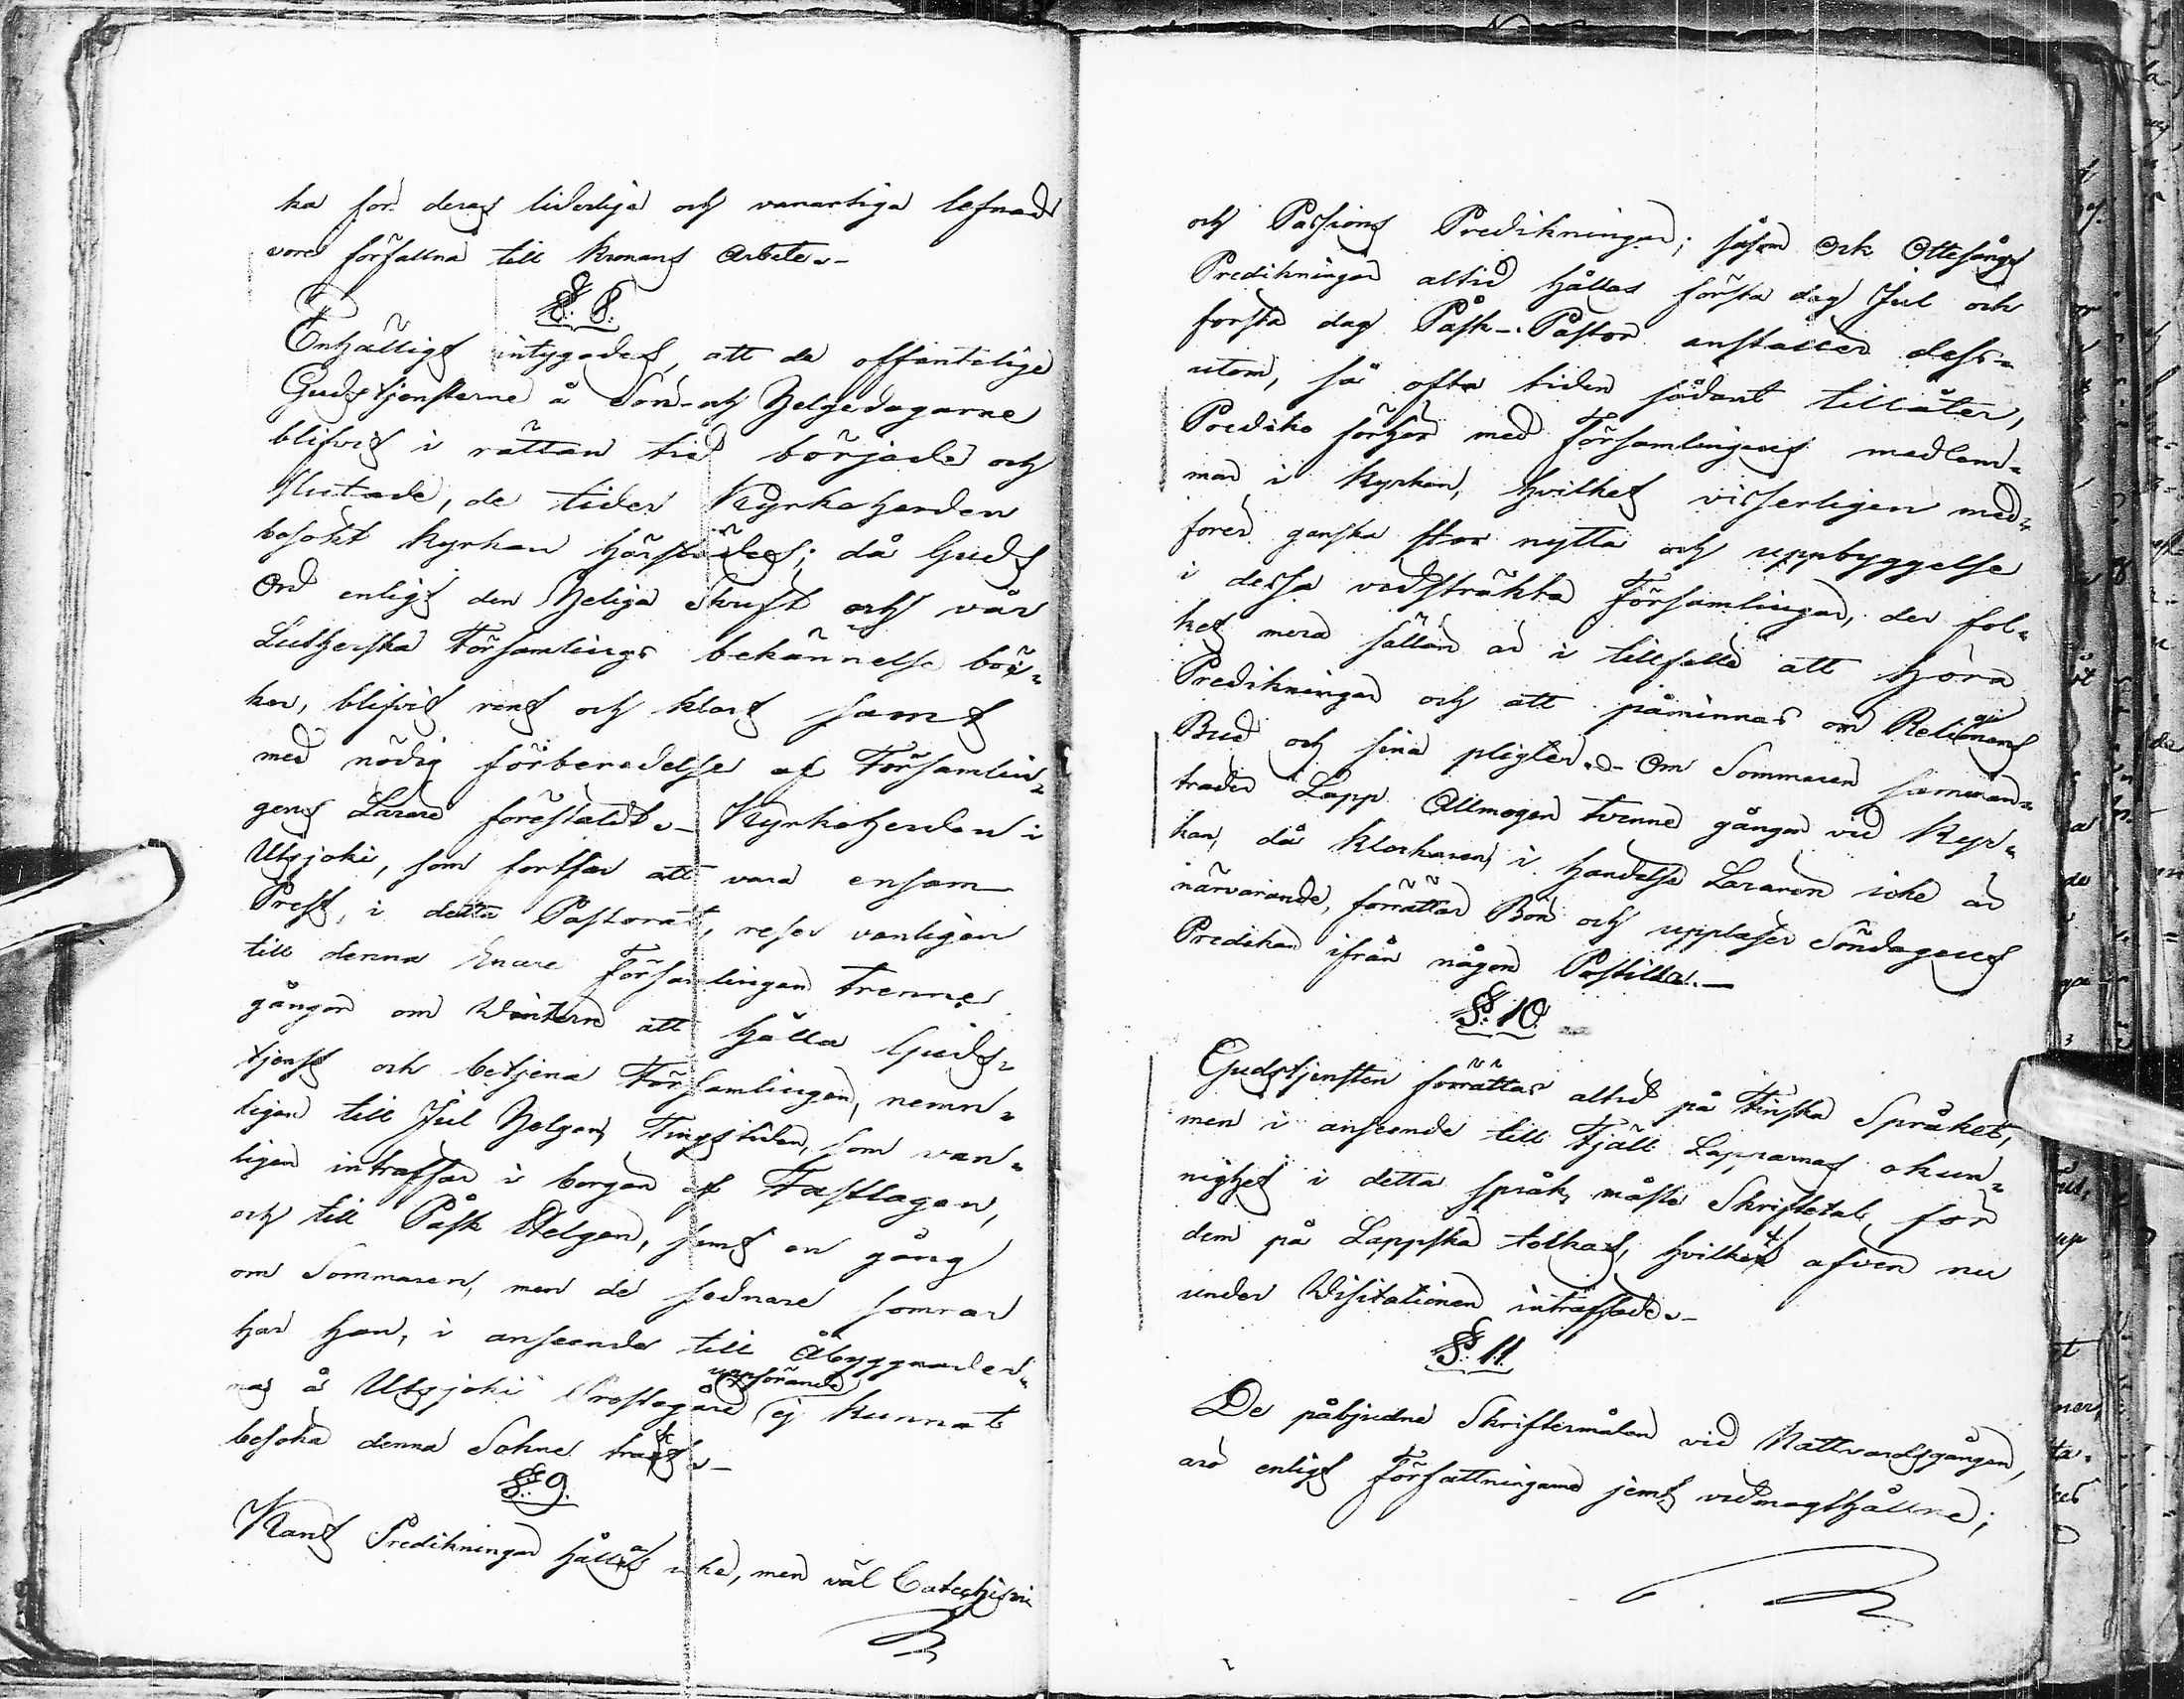 ka för deras liderliga och vanartiga lefnad
vore förfallna till Kronans Arbete.-
§. 8.
Enhälligt intygades, att de offentelige
Gudstjensterne å Sön- och Helgedagarne
blifvit i rättan tid började och
slutade, de tider Kyrkoherden
besökt Kyrkan härstädes; då Guds
Ord enligt den Heliga Skrift och vår
Lutherska Församlings bekännelse böc-
ker, blifvit rent och klart samt
med nödig förberedelse af Församlin-
gens Lärare föreståldt.- Kyrkoherden i
Utsjoki, som fortfar att vara ensam
Prest, i detta Pastorat, reser vanligen
till denna Enare Församlingen trenne
gångor om Wintern att hålla Guds-
tjenst och betjena Församlingen, nemn-
ligen till Jul Helgen, Tingstiden, som van-
ligen intraffar i början af Fastlagen,
och till Påsk Helgen, samt en gång
om Sommaren, men de sednare somrar
har han, i anseende till Åbyggnader-
nas å Utsjoki Prostegård uppförande ej kunnat
besöka denna Sokne trakt.-
§. 9.
Kants Predikningar hållas icke, men väl Catechismi
och Passions Predikningar; såsom ock Ottesångs
Predikningar altid hållas första dag Jul och
forsta dag Påsk.- Pastor anstaller dess-
utom, så ofta tiden sådant tillåter,
Prediko förhör med Församlingens medlem-
mar i Kyrkan, hvilket visserligen med-
förer ganska stor nytta och uppbyggelse
i dessa vidsträkta Församlingar, der fol-
ket mera sällan är i tillfälle att höra
Predikningar och att påminnas om Religionens
Bud och sina pligter.- Om Sommaren samman-
träder Lapp Allmogen tvenne gångor vid Kyr-
kan, då Klockaren, i handelse Läraren icke är
närvarande, förrättar Bön och uppläser Söndagens
Predikan ifrån någon Postilla.-
§. 10.
Gudstjensten förrättas altid på Finska Språket,
men i anseende till Fjäll Lapparnas okun-
nighet i detta språk, måste Skriftetal, för
dem på Lappska tolkas, hvilket afven nu
under Visitationen inträffade.-
§. 11.
De påbjudne Skriftermålen vid Nattvardsgången,
aro enligt Författningarne jemt vidmagthållne;